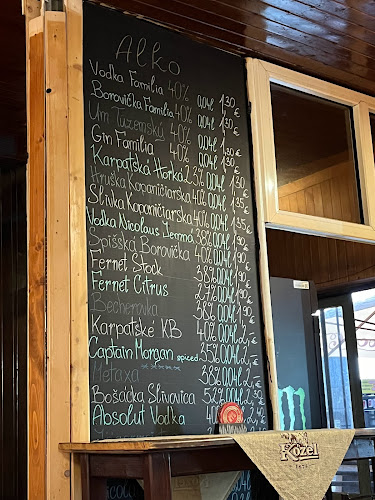 Alko
Vodka Familia 40% 0,04l 1,30
Borovička Familia 40% 0,04l 1,30 €
Um Tuzemský 40% 0,04l 1,30 €
Gin Familia 40% 0,04l 1,30 €
Karpatská Horká 0,04l 1,30
Hruška Kopaničiarska 40% 0,04l 1,35
Slivka Kopaničiarska 40% 0,04l 1,35
Vodka Nicolaus Jemná 38% 0,04l 1,90
Spišská Borovička 40% 0,04l 1,90
Fernet Stock 38% 0,04l 1,90
Fernet Citrus 27% 0,04l 1,90
Becherovka 38% 0,04l 1,90
Karpatské KB 40% 0,04l 2,-
Captain Morgan spiced 35% 0,04l 2,-
Metaxa ***** 38% 0,04l 2,-
Bošácka Slivovica 52% 0,04l
Absolut Vodka 40 2,40
Kozel
1874